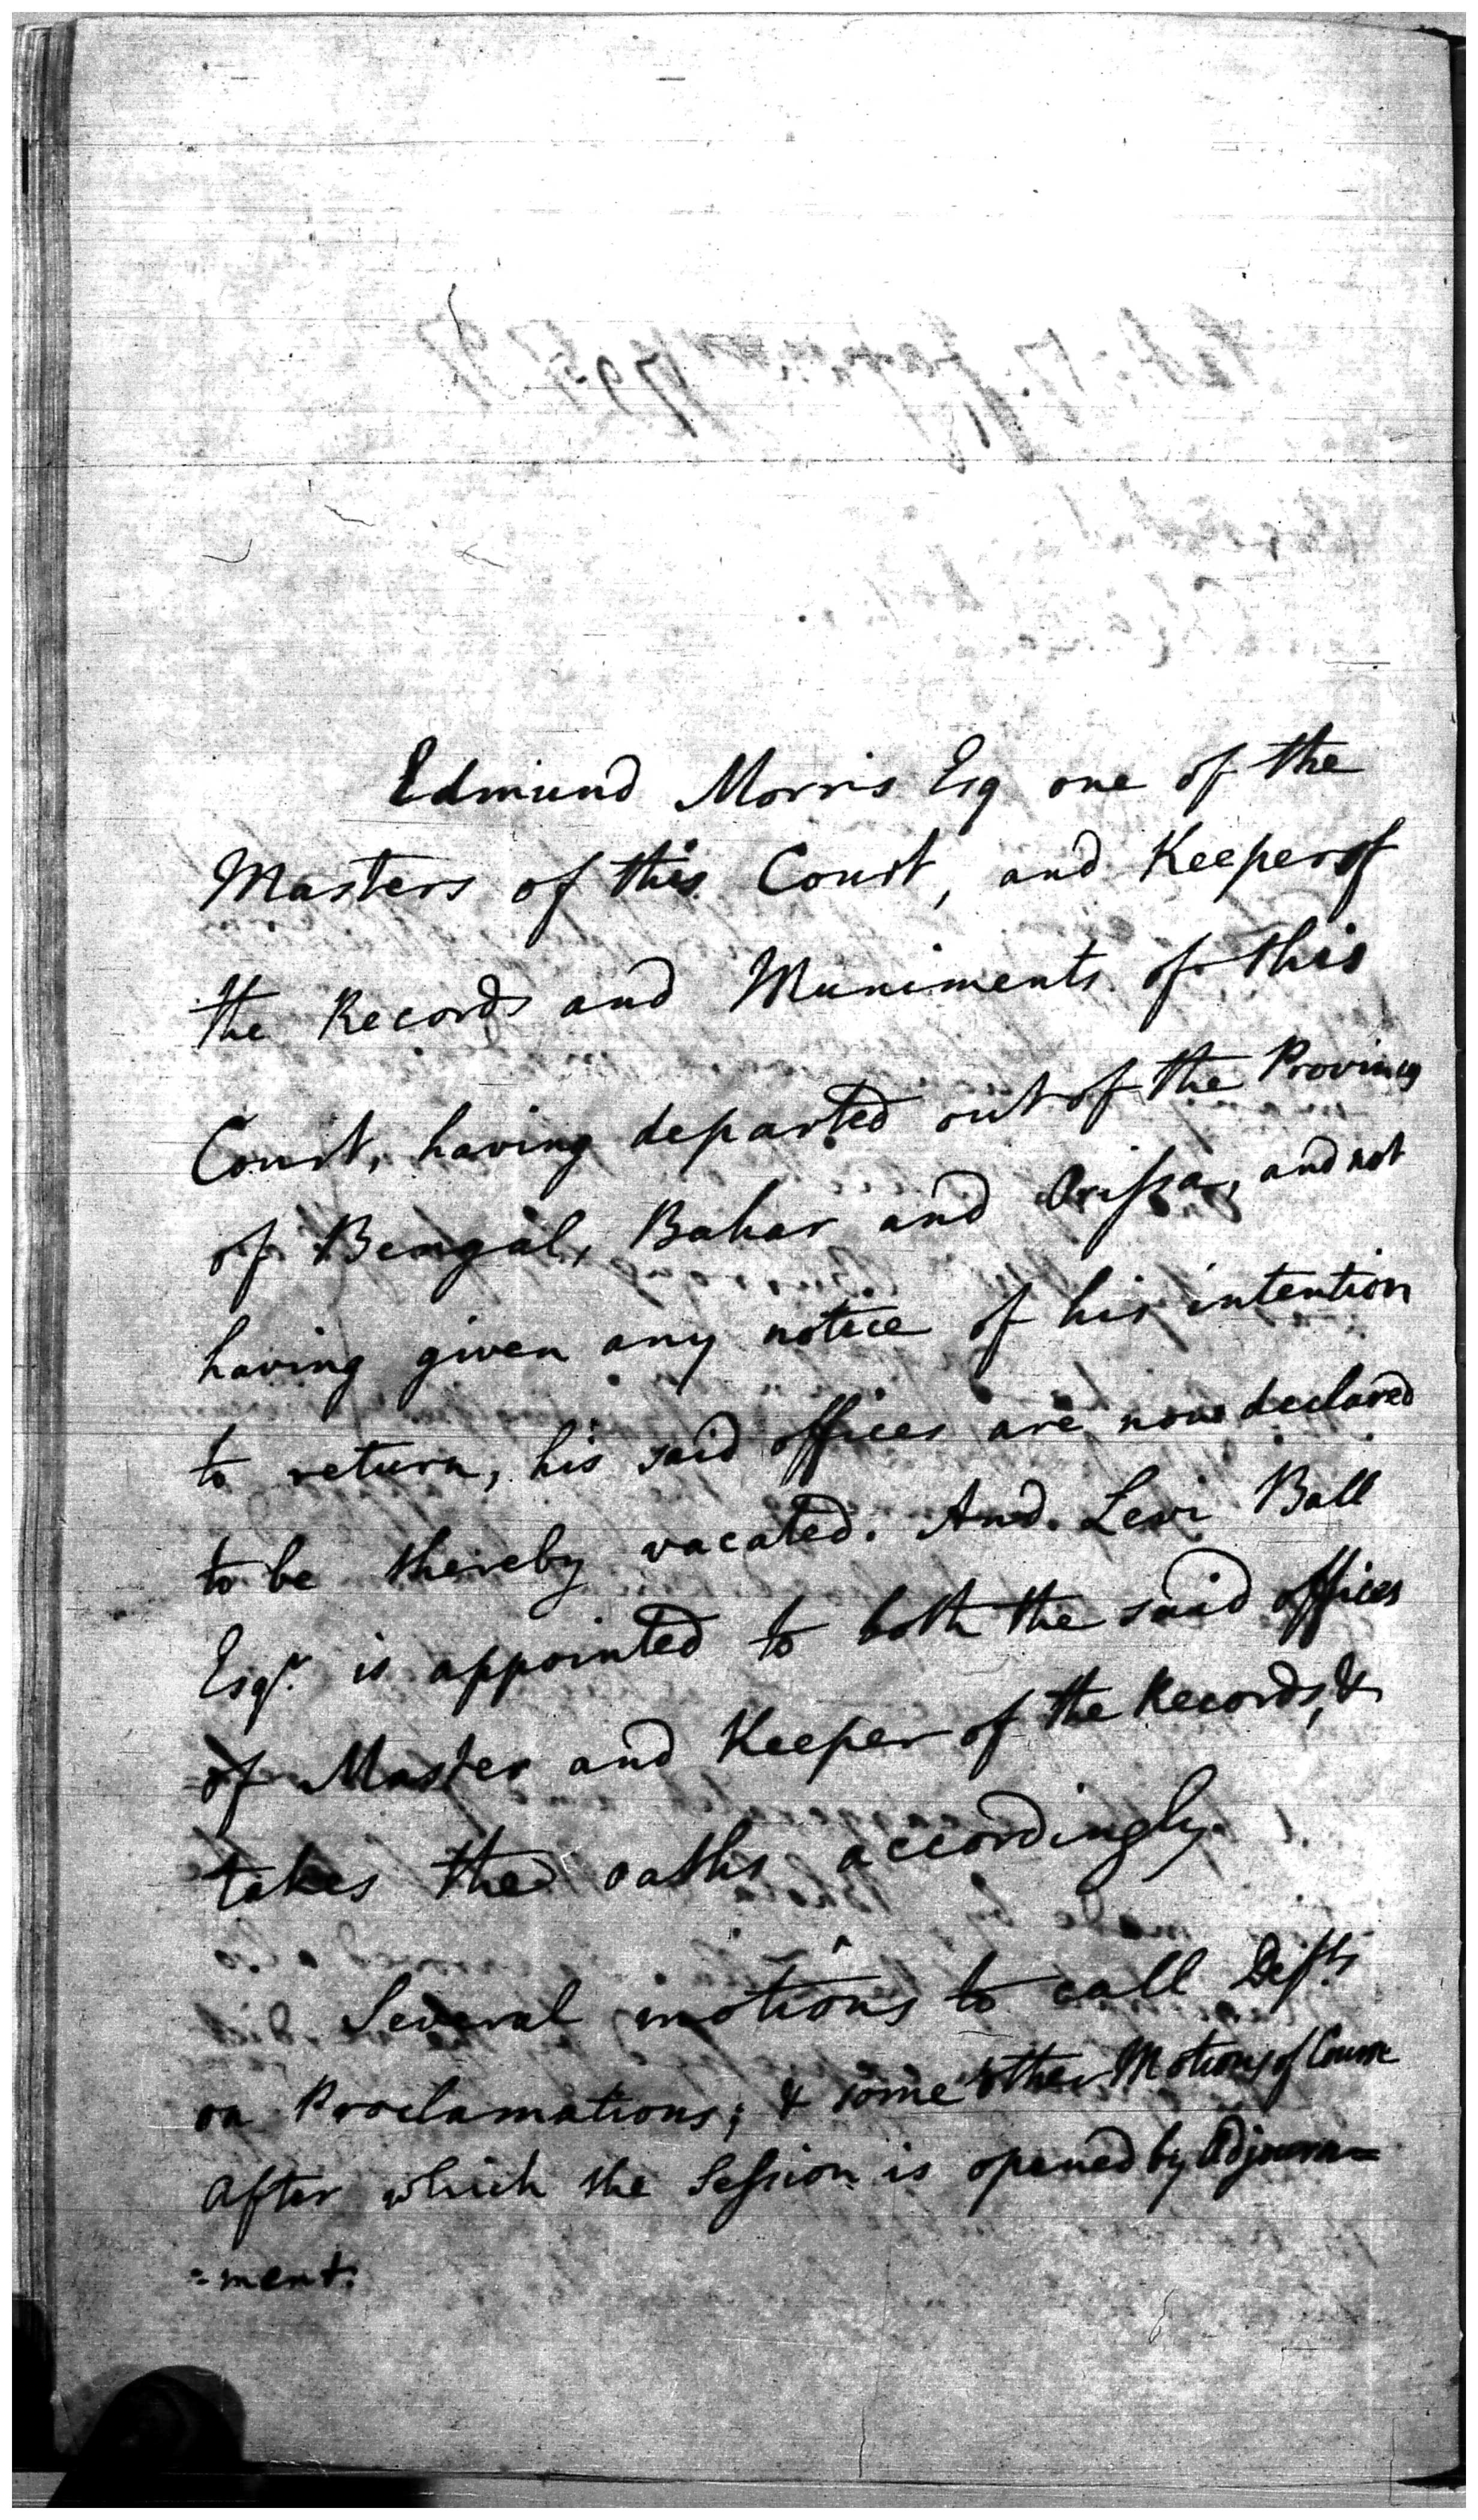 Edmund Morris Esq one of the
Masters of this Court, and Keeper of
the Records and Muniments of this
Court, having departed out of the Provinces
of Bengal, Bahar and Orissa, and not
having given any notice of his intention
to return, his said offices are now declared
to be thereby vacated. And Levi Ball
Esqr. is appointed to both the said offices
of Master and Keeper of the Records, &
takes the oaths accordingly.
Several motions to call Defts
on Proclamations; & some other Motions of Course
after which the Session is opened by Adjourn=
=ment.